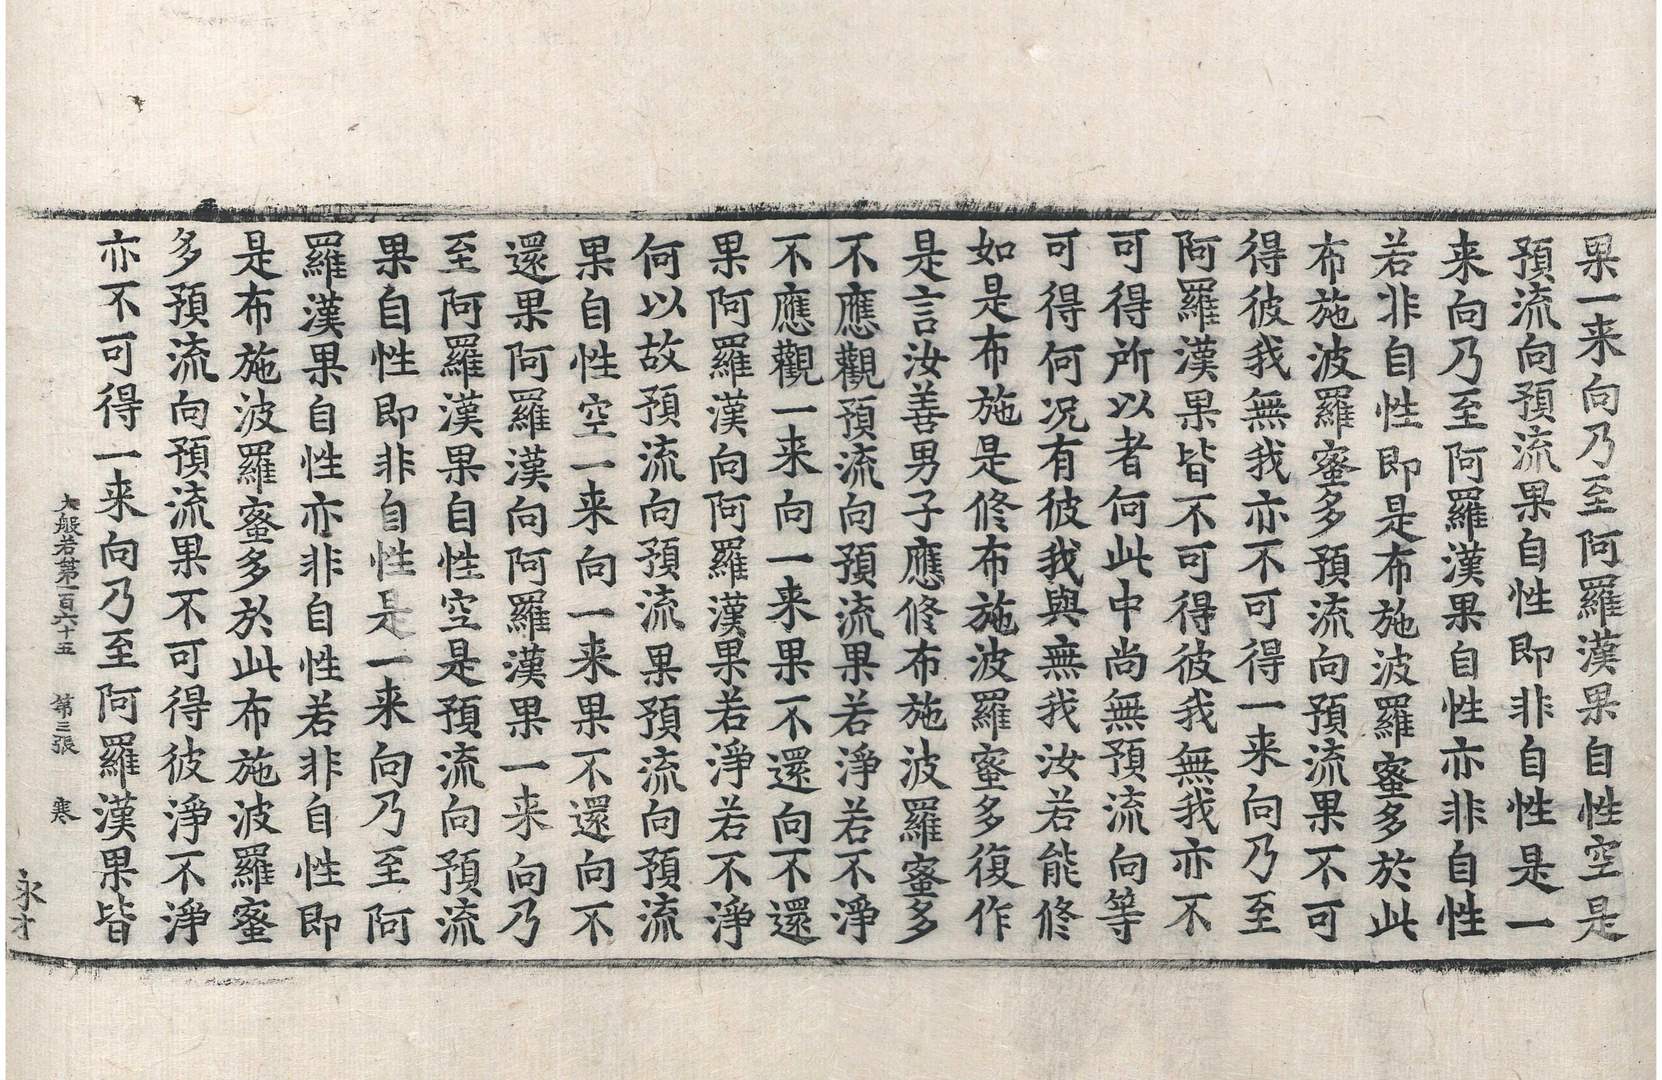 果一来向乃至阿羅漢果自性空是
預流向預流果自性即非自性是一
来向乃至阿羅漢果自性亦非自性
若非自性即是布施波羅蜜多於此
布施波羅蜜多預流向預流果不可
得彼我無我亦不可得一来向乃至
阿羅漢果皆不可得彼我無我亦不
可得所以者何此中尚無預流向等
可得何况有彼我與無我汝若能修
如是布施是修布施波羅蜜多復作
是言汝善男子應修布施波羅蜜多
不應觀預流向預流果若淨若不淨
不應觀一来向一来果不還向不還
果阿羅漢向阿羅漢果若淨若不淨
何以故預流向預流果預流向預流
果自性空一来向一来果不還向不
還果阿羅漢向阿羅漢果一来向乃
至阿羅漢果自性空是預流向預流
果自性即非自性是一来向乃至阿
羅漢果自性亦非自性若非自性即
是布施波羅蜜多於此布施波羅蜜
多預流向預流果不可得彼淨不淨
亦不可得一来向乃至阿羅漢果皆
大般若第一百六十五 第三張 寒
永才